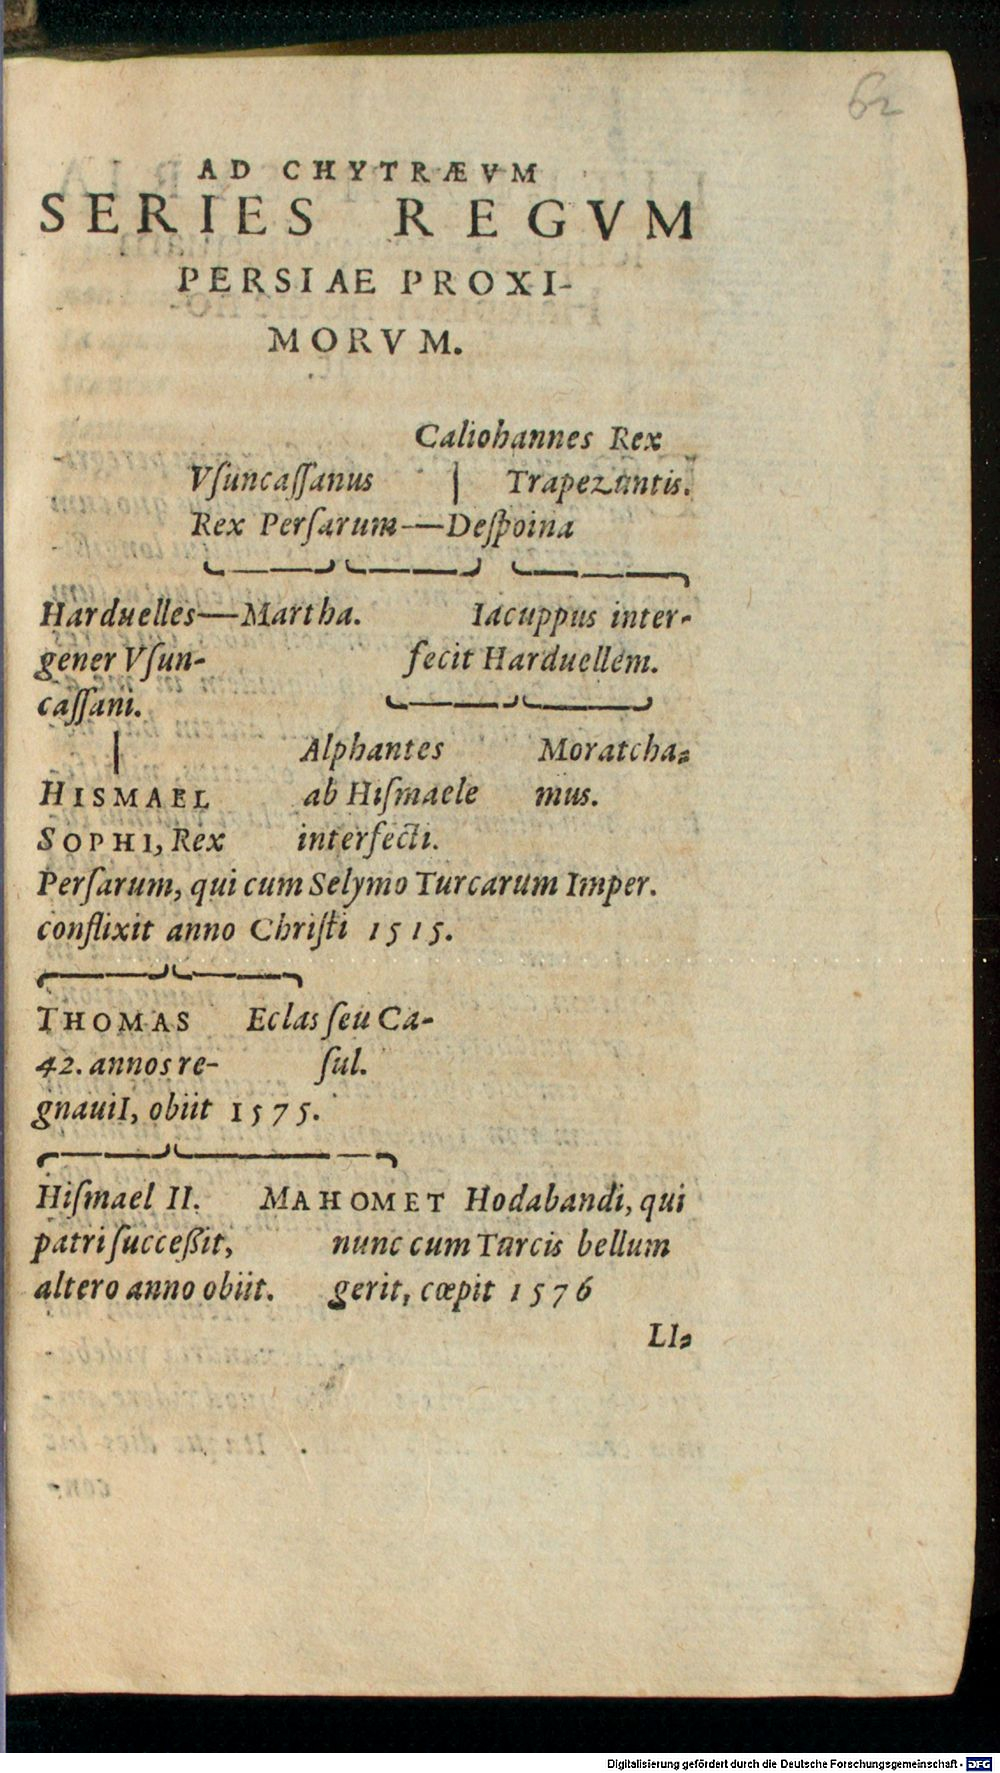 62
AD CHYTRÆVM
SERIES REGVM
PERSIAE PROXI-
MORVM.
Caliohannes Rex
Vſuncaſſanus | Trapezuntis.
Rex Perſarum—Deſpoina
Harduelles—Martha. Iacuppus inter-
gener Vſun- fecit Harduellem.
caſſani.
| Alphantes Moratcha-
HISMAEL ab Hiſmaele mus.
SOPHI, Rex interfecti.
Perſarum, qui cum Selymo Turcarum Imper.
conflixit anno Chriſti 1515.
THOMAS Eclas ſeu Ca-
42. annos re- ſul.
gnauiI, obiit 1575.
Hiſmael II. MAHOMET Hodabandi, qui
patri ſucceßit, nunc cum Turcis bellum
altero anno obiit. gerit, cœpit 1576
LI-
Digitalisierung gefördert durch die Deutsche Forschungsgemeinschaft - DFG